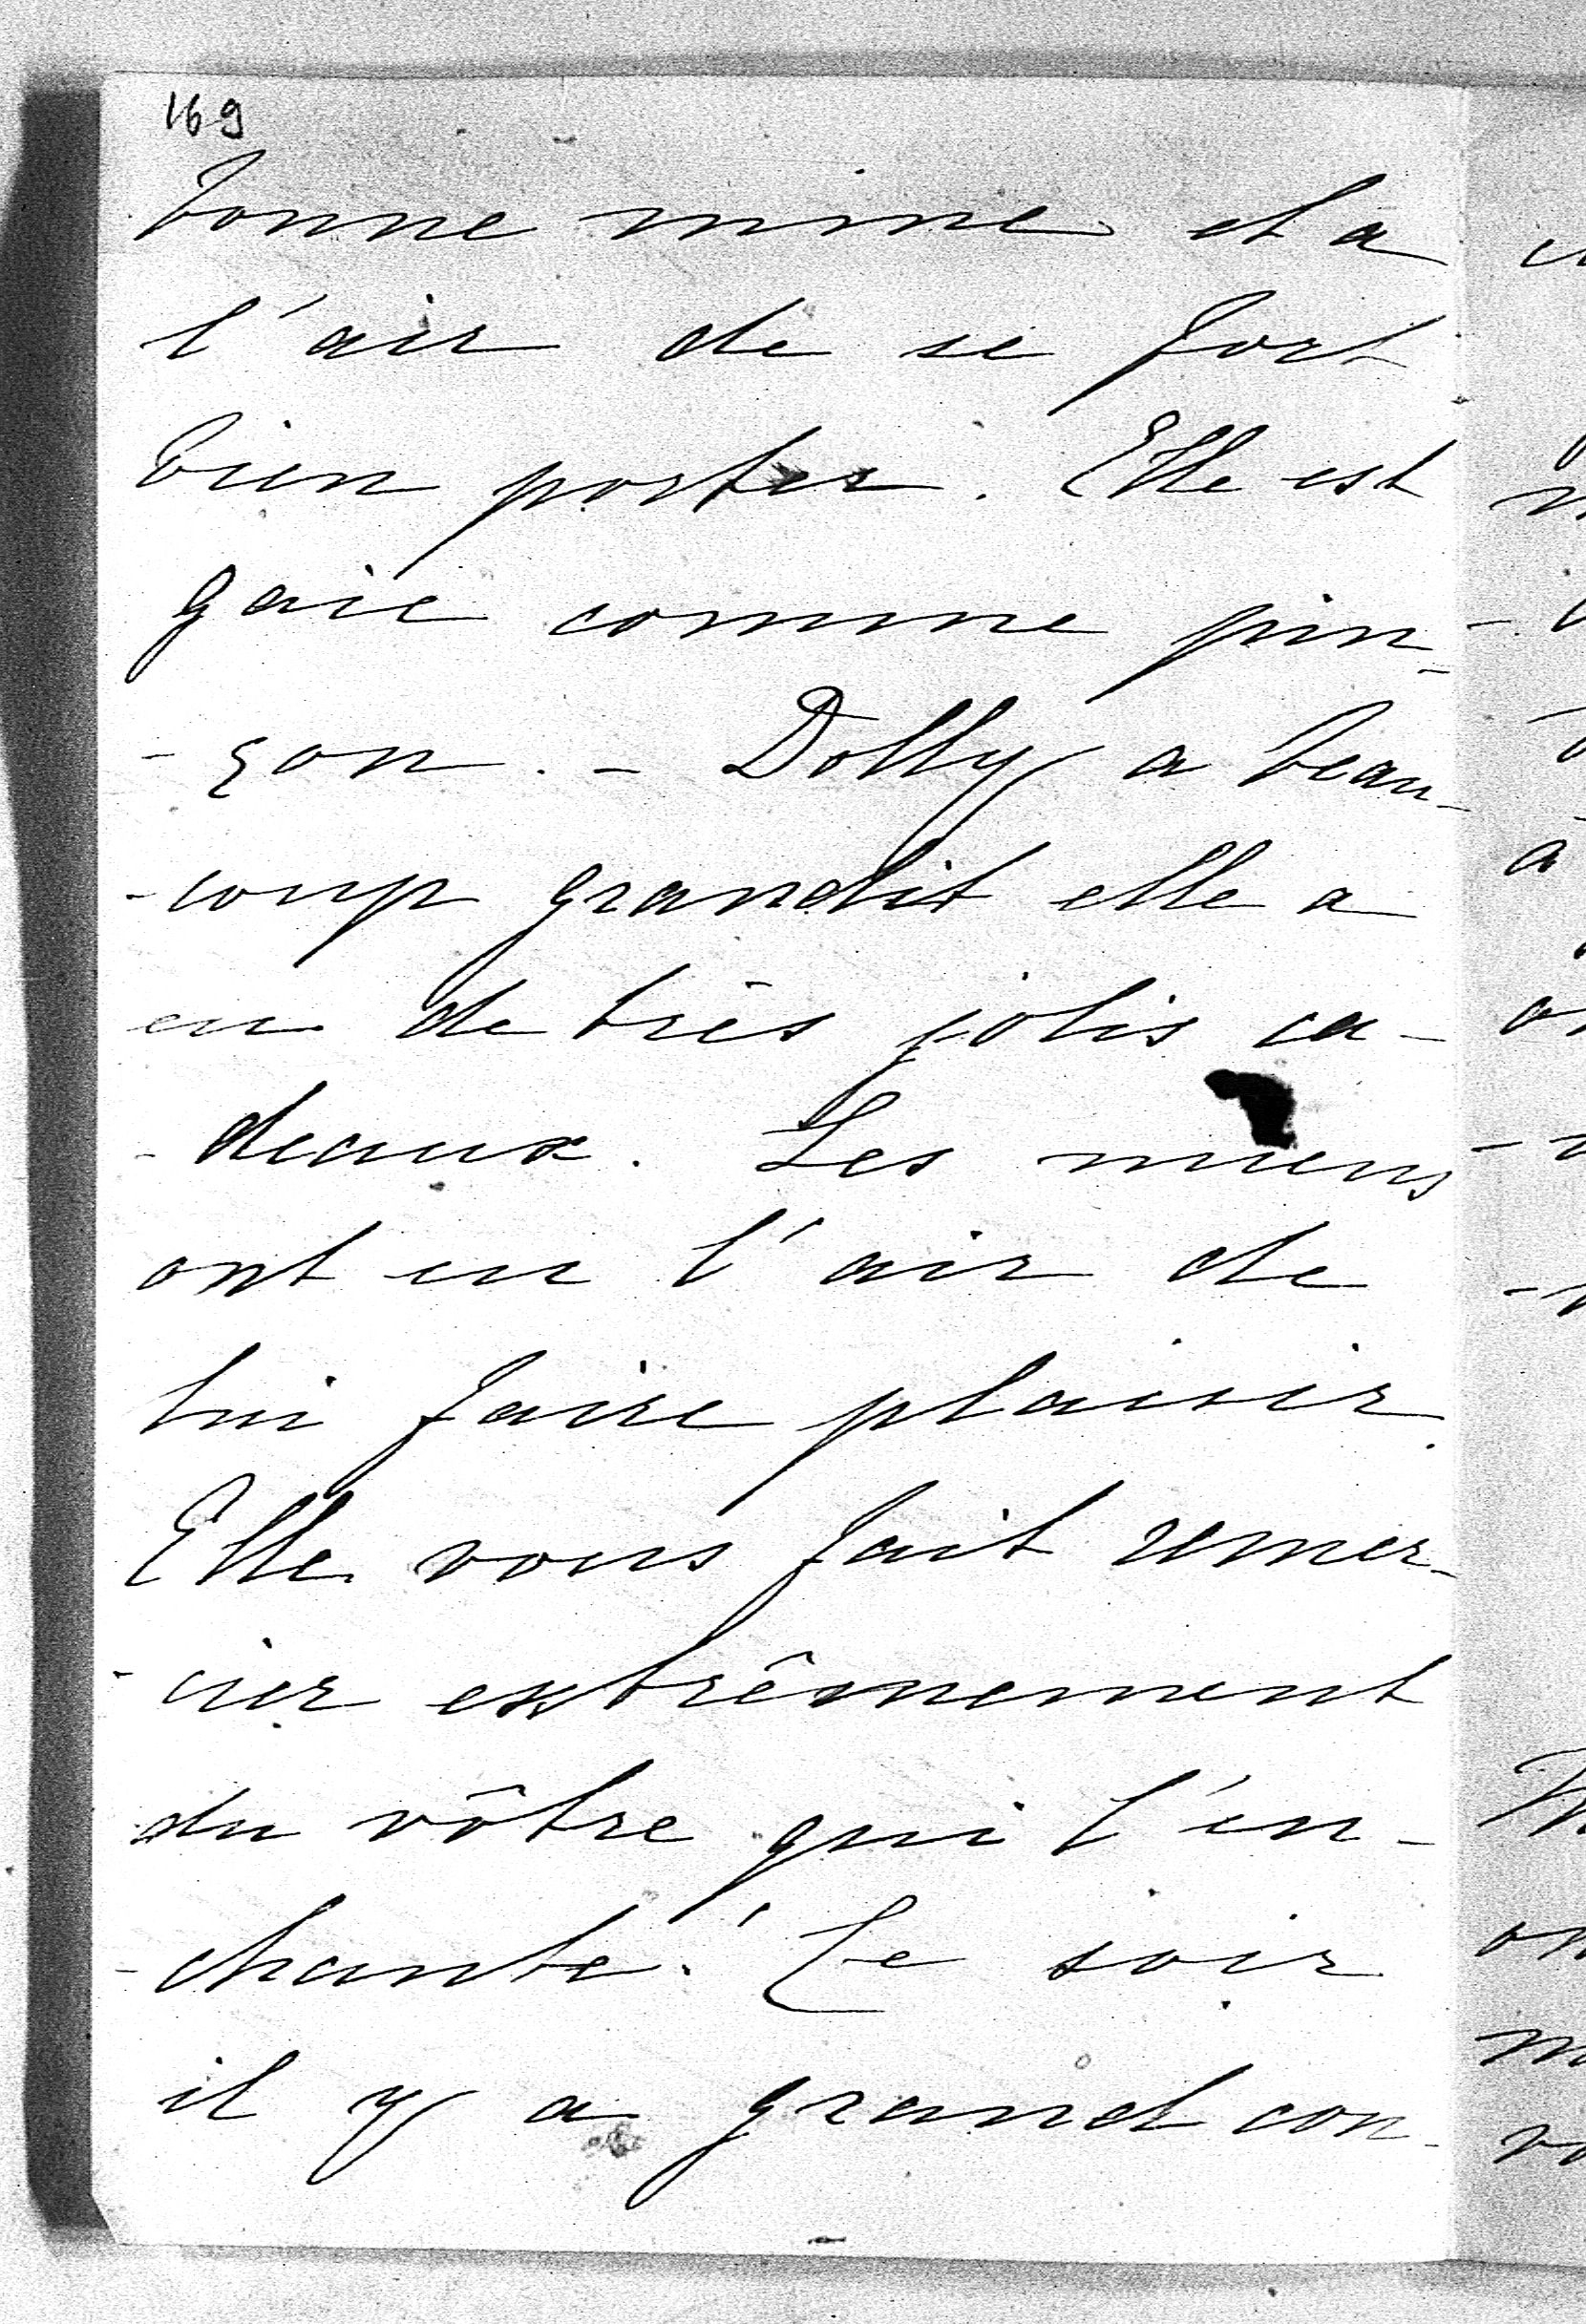 169
bonne mine et a
l'air de se fort
bien porter. Elle est
gaie comme pin-
-çon. - Dolly a beau-
-coup grandit elle a
eu de très jolis ca-
-deaux. Les miens
ont eu l'air de
lui faire plaisir.
Elle vous fait remer-
-cier extrêmement
du vôtre qui l'en-
-chante! Ce soir
il y a grand con-